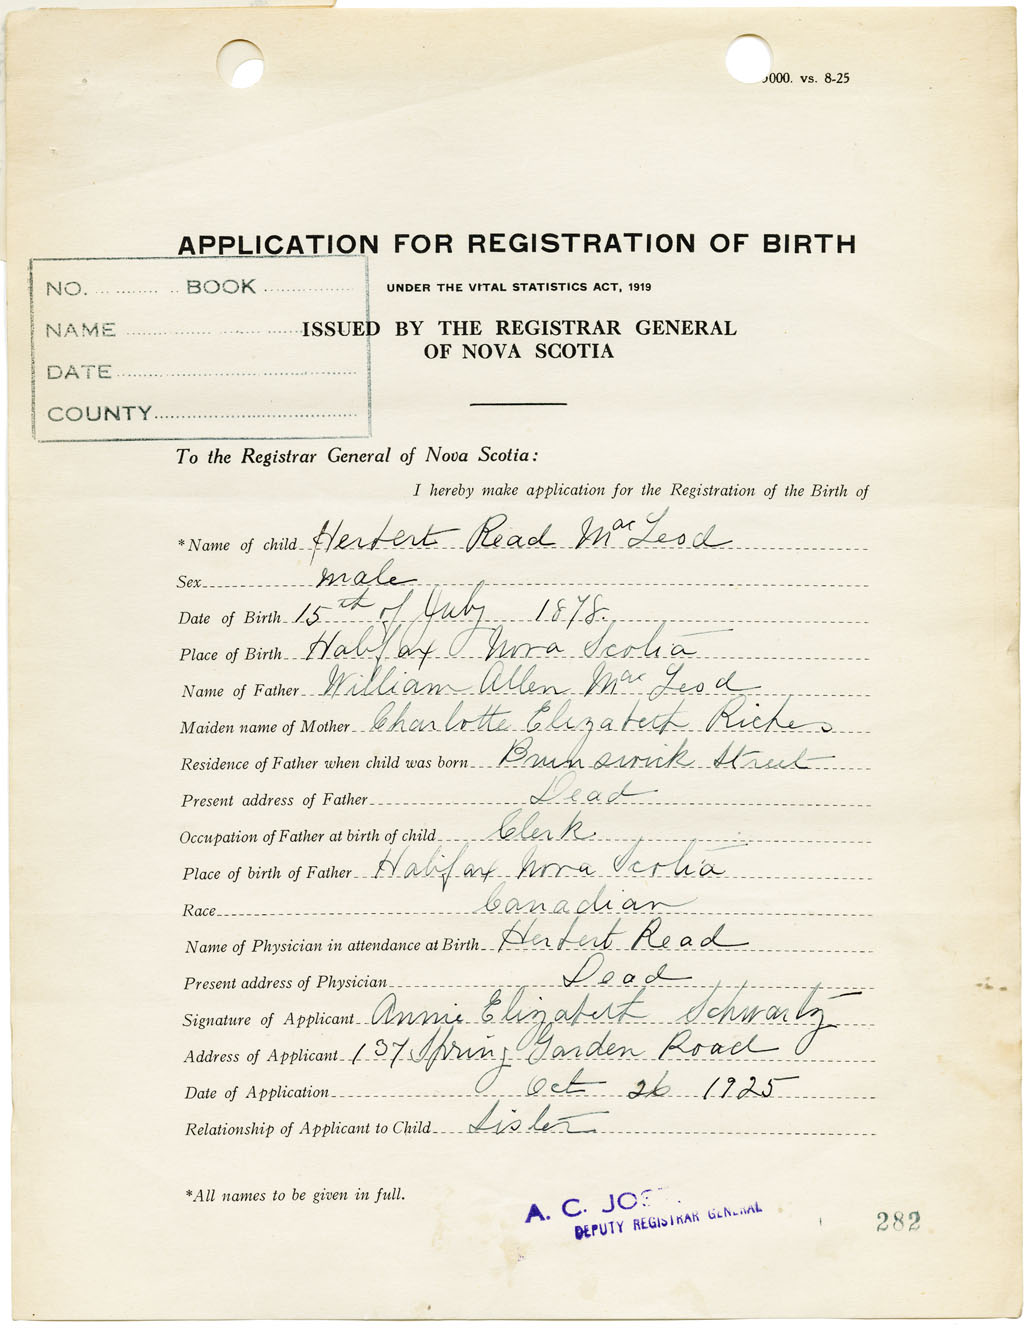 000. vs. 8-25
APPLICATION FOR REGISTRATION OF BIRTH
UNDER THE VITAL STATISTICS ACT, 1919
ISSUED BY THE REGISTRAR GENERAL
OF NOVA SCOTIA
NO. BOOK
NAME
DATE
COUNTY
To the Registrar General of Nova Scotia:
I hereby make application for the Registration of the Birth of
*Name of child Herbert Read MacLeod
Sex male
Date of Birth 15th of July 1878.
Place of Birth Halifax Nova Scotia
Name of Father William Allen MacLeod
Maiden name of Mother Charlotte Elizabeth Riches
Residence of Father when child was born Brunswick Street
Present address of Father Dead
Occupation of Father at birth of child Clerk
Place of birth of Father Halifax Nova Scotia
Race Canadian
Name of Physician in attendance at Birth Herbert Read
Present address of Physician Dead
Signature of Applicant Annie Elizabeth Schwartz
Address of Applicant 137 Spring Garden Road
Date of Application Oct 26 1925
Relationship of Applicant to Child Sister
*All names to be given in full.
A. C. JOS
DEPUTY REGISTRAR GENERAL
282